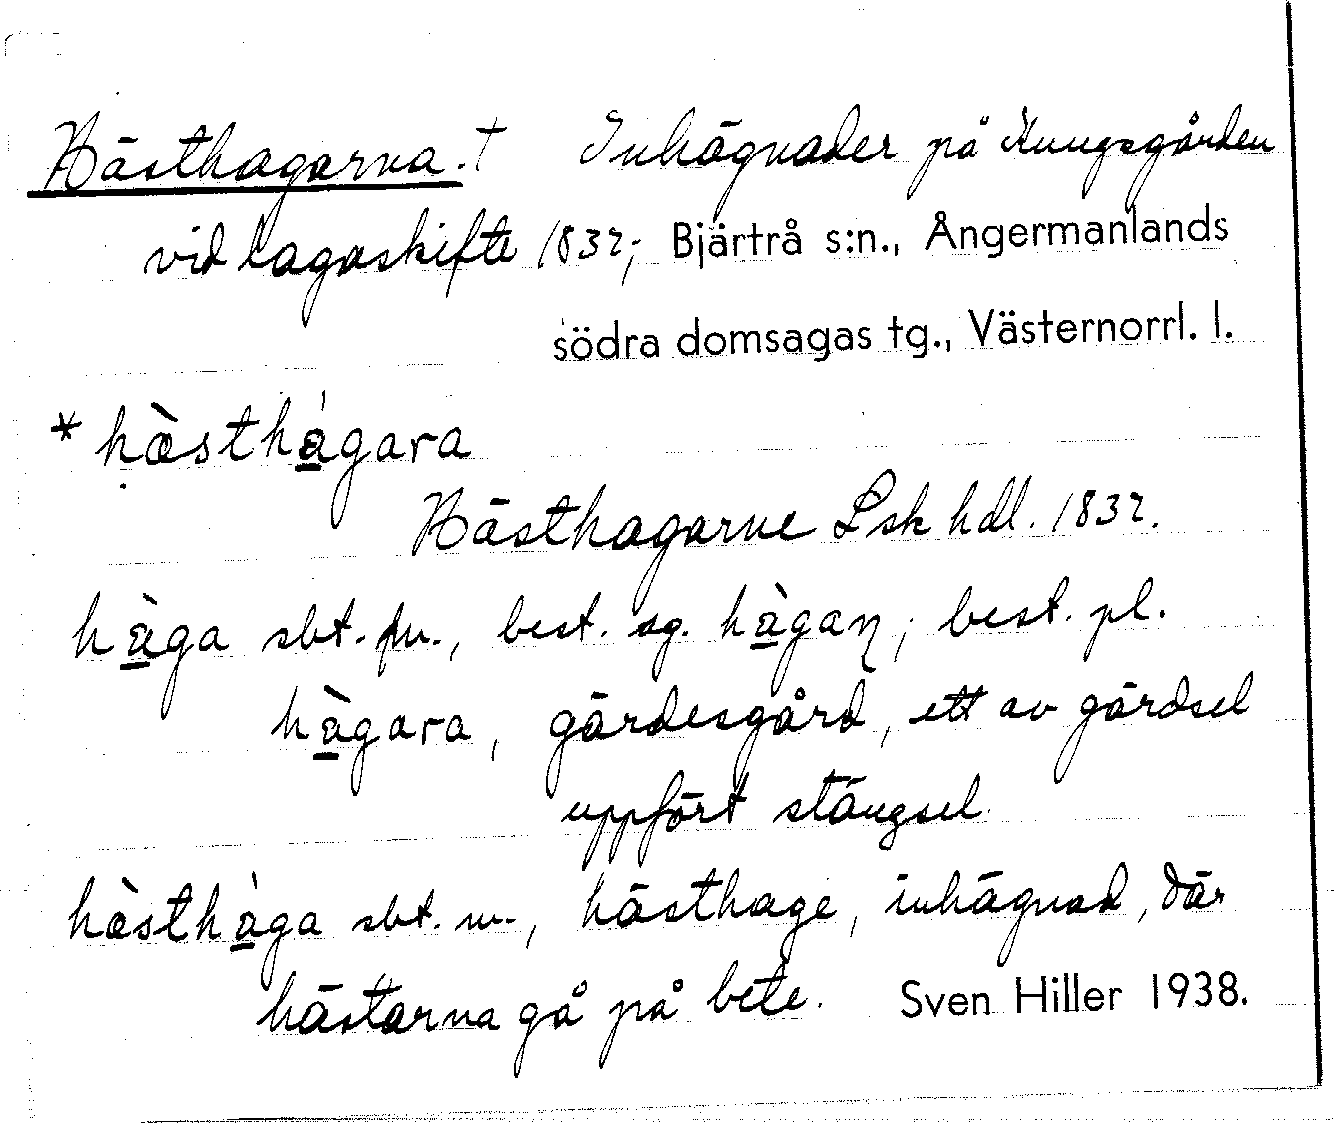 Hästhagarna.† Inhägnader på Kungsgården
vid lagaskifte 1832; Bjärtrå s:n., Ångermanlands
södra domsagas tg., Västernorrl. l.
* hæ̀sthágara
Hästhagarne Lsk hdl. 1832.
hàga sbt. m., best. sg. hàgaɳ; best. pl.
hàgara, gärdesgård, ett av gärdsel
uppfört stängsel.
hæ̀sthága sbt. m., hästhage, inhägnad, där
hästarna gå på bete. Sven Hiller 1938.